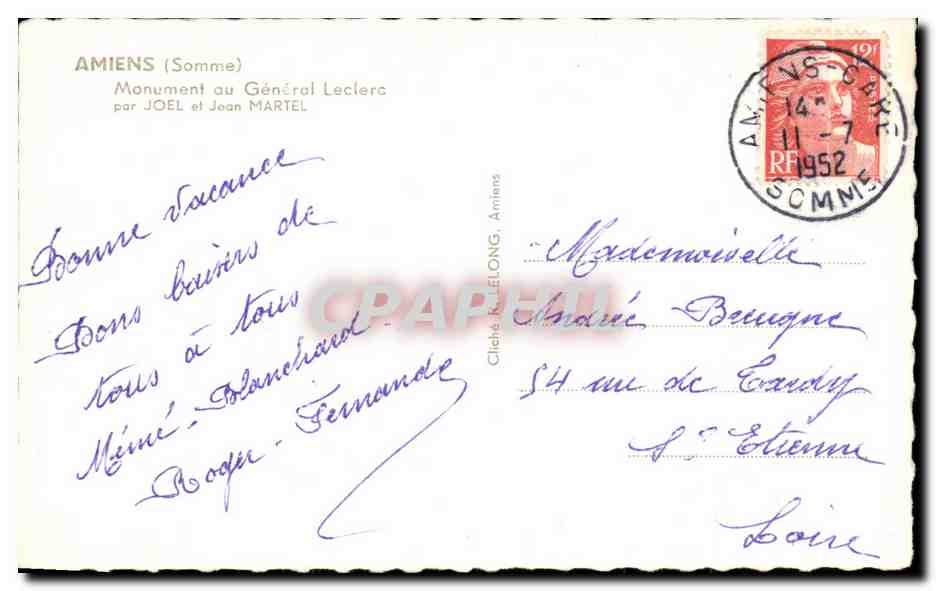 AMIENS (Somme)
Monument au Général Leclerc
par JOEL et Jean MARTEL
Bonne vacance
Bons baisers de
tous à tous
Mémé - Blanchard -
Roger - Fernande
Cliché R. LELONG, Amiens
CPAPHIL
12f
RF
AMIENS-GARE
14H
11 - 7
1952
SOMME
Mademoiselle
Andrée Breugne
54 rue de Tardy
St Etienne
Loire